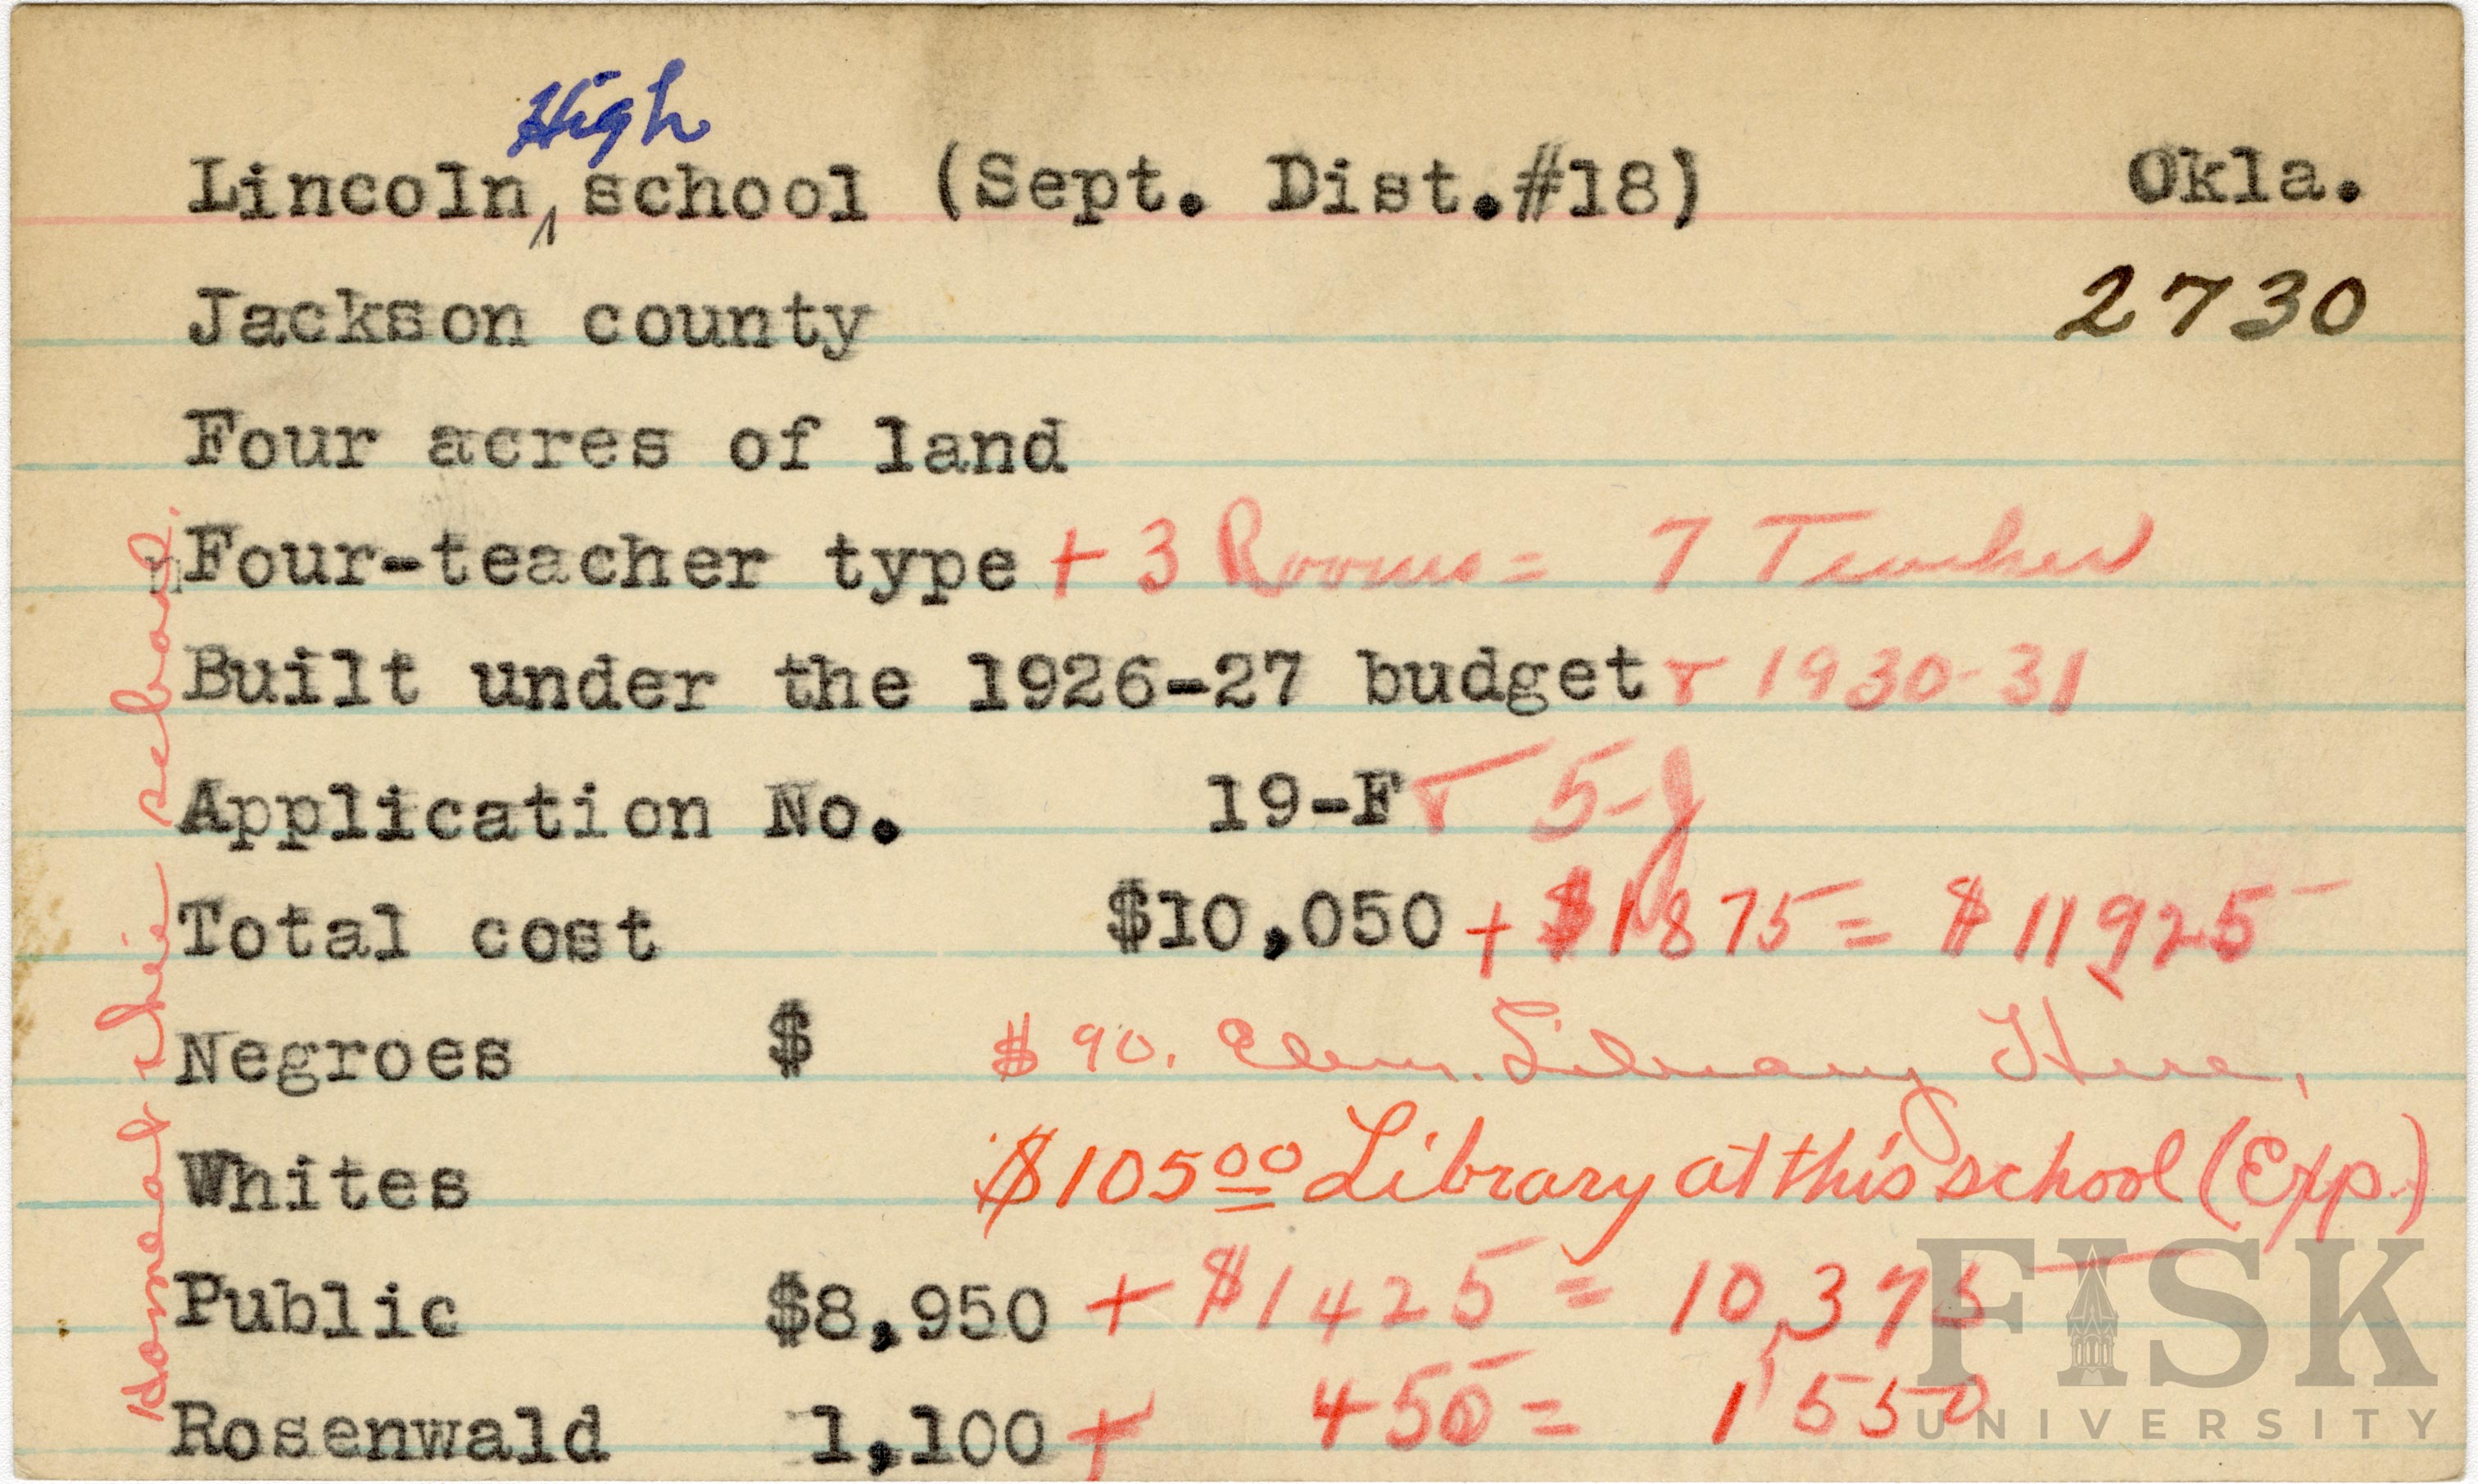 High
Lincoln ^ school (Sept. Dist.#18) Okla.
Jackson county 2730
Four acres of land
Four-teacher type + 3 Rooms = 7 Teacher
Built under the 1926-27 budget & 1930-31
Application No. 19-F & 5-J
Total cost $10,050 + $1875 = $11925
Negroes $ $90. Elem. Library Here.
Whites $105 00 Library at this school (Exp.)
Public $8,950 + $1425 = 10,375
Rosenwald 1,100 + 450 = 1550
this school.
FISK
UNIVERSITY